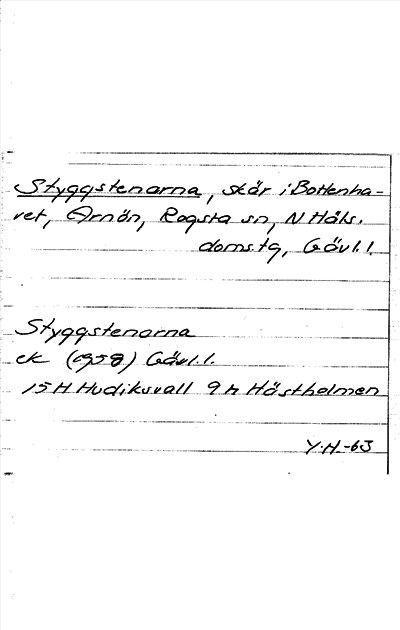 Styggstenarna, skär i Bottenha-
vet, Arnön, Rogsta sn, N Häls.
doms.tg, Gävl.l.
Styggstenarna
ek (1958) Gävl.l.
15 H Hudiksvall 9 h Hästholmen
Y.H-63